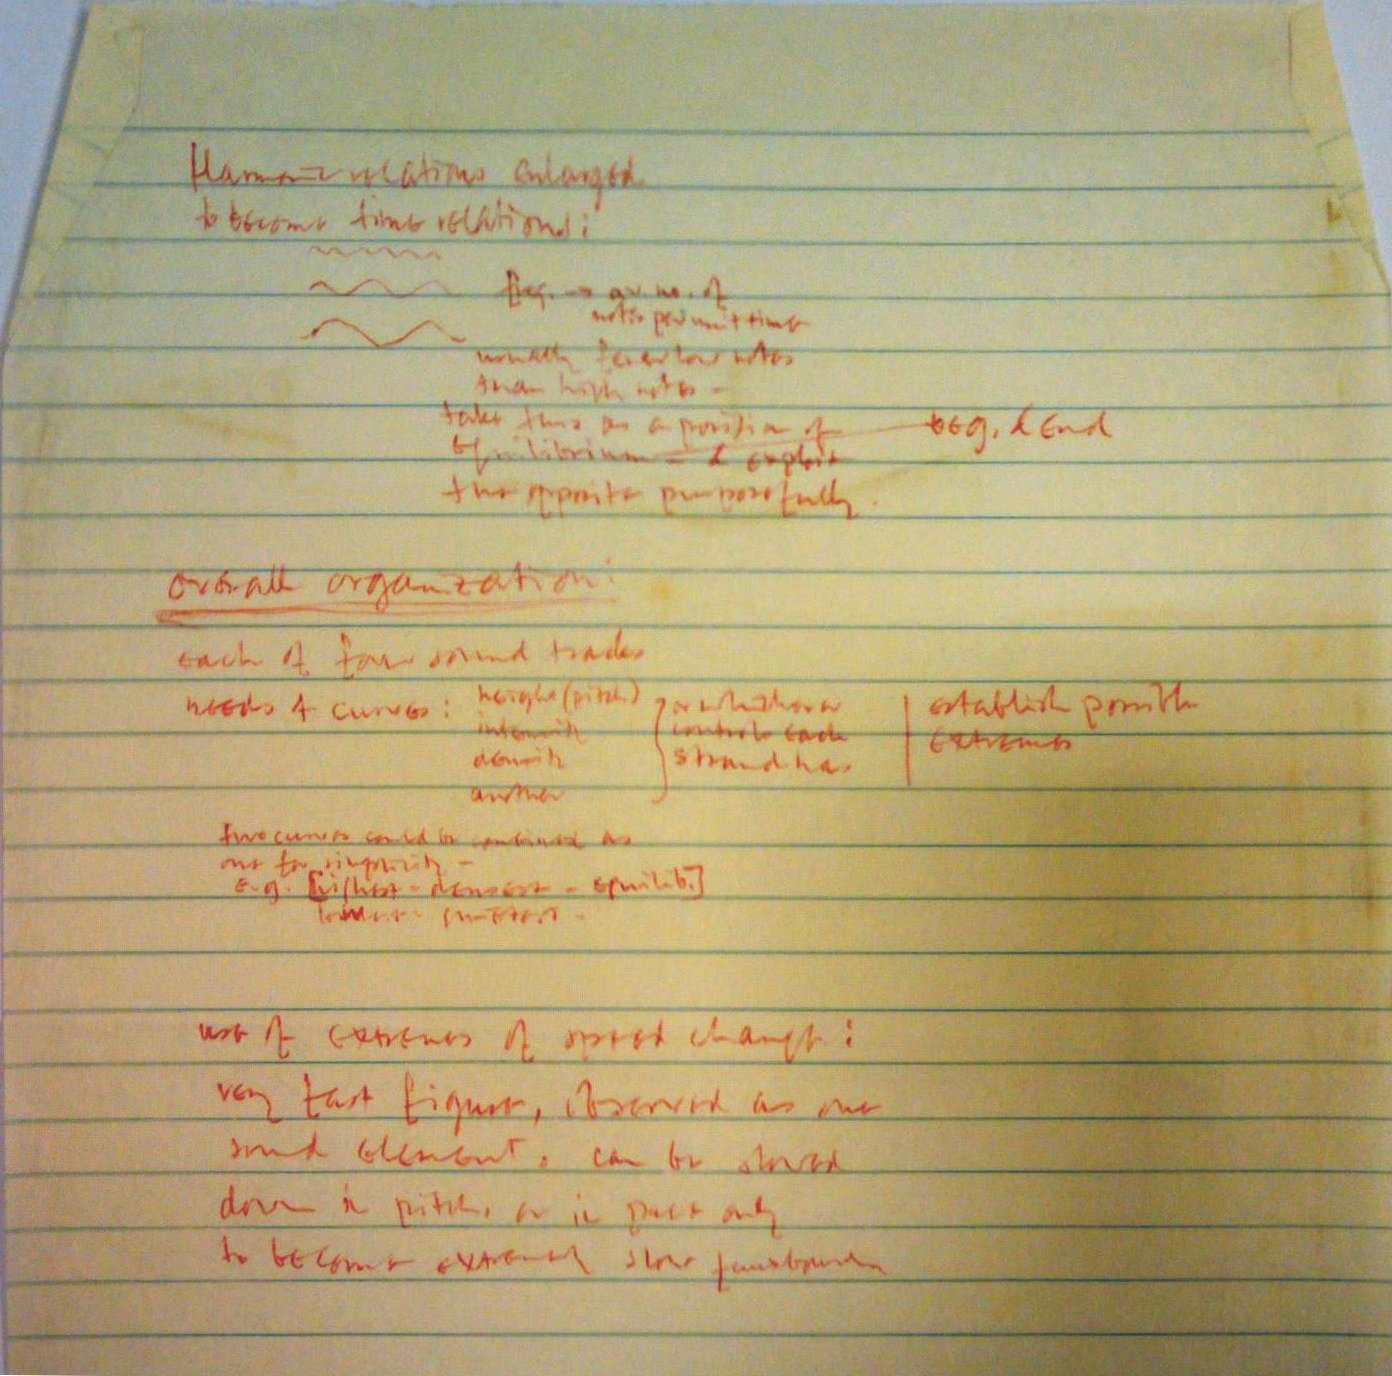 Harmonic relations enlarged
to become time relations:
freq. → av. no. of
notes per unit time
usually fewer low notes
than high notes –
take this as a position of
equilibrium – & exploit
the opposite purposefully.
beg. & end
overall organization:
each of four sound tracks
needs 4 curves:
height (pitch)
intensity
density
another
or whichever
controls each
strand has
establish possible
extremes
two curves could be combined as
one for simplicity –
e.g. [highest – densest – equilib.]
lowest –
use of extremes of speed change:
very fast figure, observed as one
sound element, can be slowed
down in pitch, or in part only
to become extremely slow